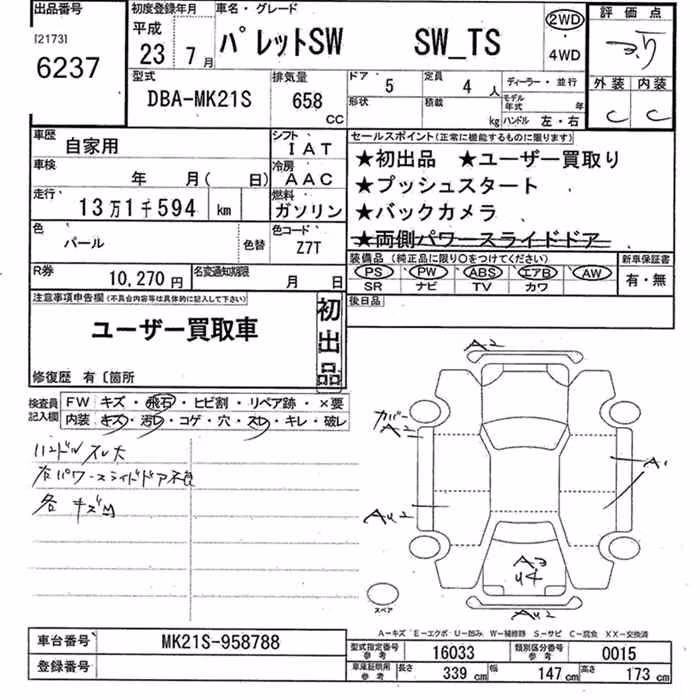 出品番号
[2173]
6237
初度登録年月
平成
23年 7月
車名・グレード
パレットSW SW_TS
2WD
・
4WD
評価点
外装 内装
C C
型式
DBA-MK21S
排気量
658 CC
ドア 5
定員 4 人
ディーラー・並行
形状
積載 kg
モデル年式 年
ハンドル 左・右
車歴
自家用
シフト
IAT
車検
年 月( 日)
冷房
AAC
走行
13万1千594 km
燃料
ガソリン
色
パール
色替
色コード
Z7T
R券
10,270円
名変通知期限
月 日
セールスポイント(正常に機能するものに限ります)
★初出品 ★ユーザー買取り
★プッシュスタート
★バックカメラ
★両側パワースライドドア
装備品(純正品に限り○をつけてください)
PS PW ABS エアB AW
SR ナビ TV カワ
新車保証書
有・無
後日品
注意事項申告欄(不具合内容等は具体的に記入して下さい)
ユーザー買取車
初出品
修復歴 有〔箇所
検査員記入欄
FW キズ・飛石・ヒビ割・リペア跡・×要
内装 キズ・汚レ・コゲ・穴・スレ・キレ・破レ
ハンドルスレ大
右パワースライドドア不良
各キズM
A2
カバー
A2
A1
AU2
A3
U4
AU2
スペア
A-キズ E-エクボ U-凹み W-補修跡 S-サビ C-腐食 XX-交換済
車台番号
MK21S-958788
登録番号
型式指定番号 参考
16033
類別区分番号 参考
0015
車庫証明用 参考
長さ 339 cm
幅 147 cm
高さ 173 cm